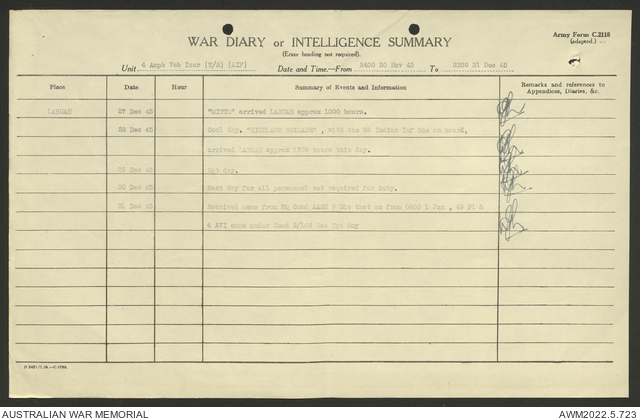 Army Form C.2118
(adapted.)
WAR DIARY or INTELLIGENCE SUMMARY
(Erase heading not required).
Unit 4 Amph Veh (T/S) [AIF] Date and Time.—From 2400 30 Nov 45 To 2359 31 Dec 45
Place Date Hour Summary of Events and Information Remarks and references to
Appendices, Diaries, &c.
LABUAN 27 Dec 45 arrived LABUAN approx 1000 hours.
28 Dec 45 Cool day. "HIGHLAND BRIGADE", with the Indian Inf on board,
arrived LABUAN approx 1700 hours this day.
29 Dec 45 Hot day.
30 Dec 45 Rest day for all personnel not required for duty.
31 Dec 45 Received memo from HQ Comd AASC 9 Div that as from 0800 1 Jan, 49 Pl &
4 AVI come under Comd 2/156 Gen Tpt Coy
AUSTRALIAN WAR MEMORIAL
AWM2022.5.723